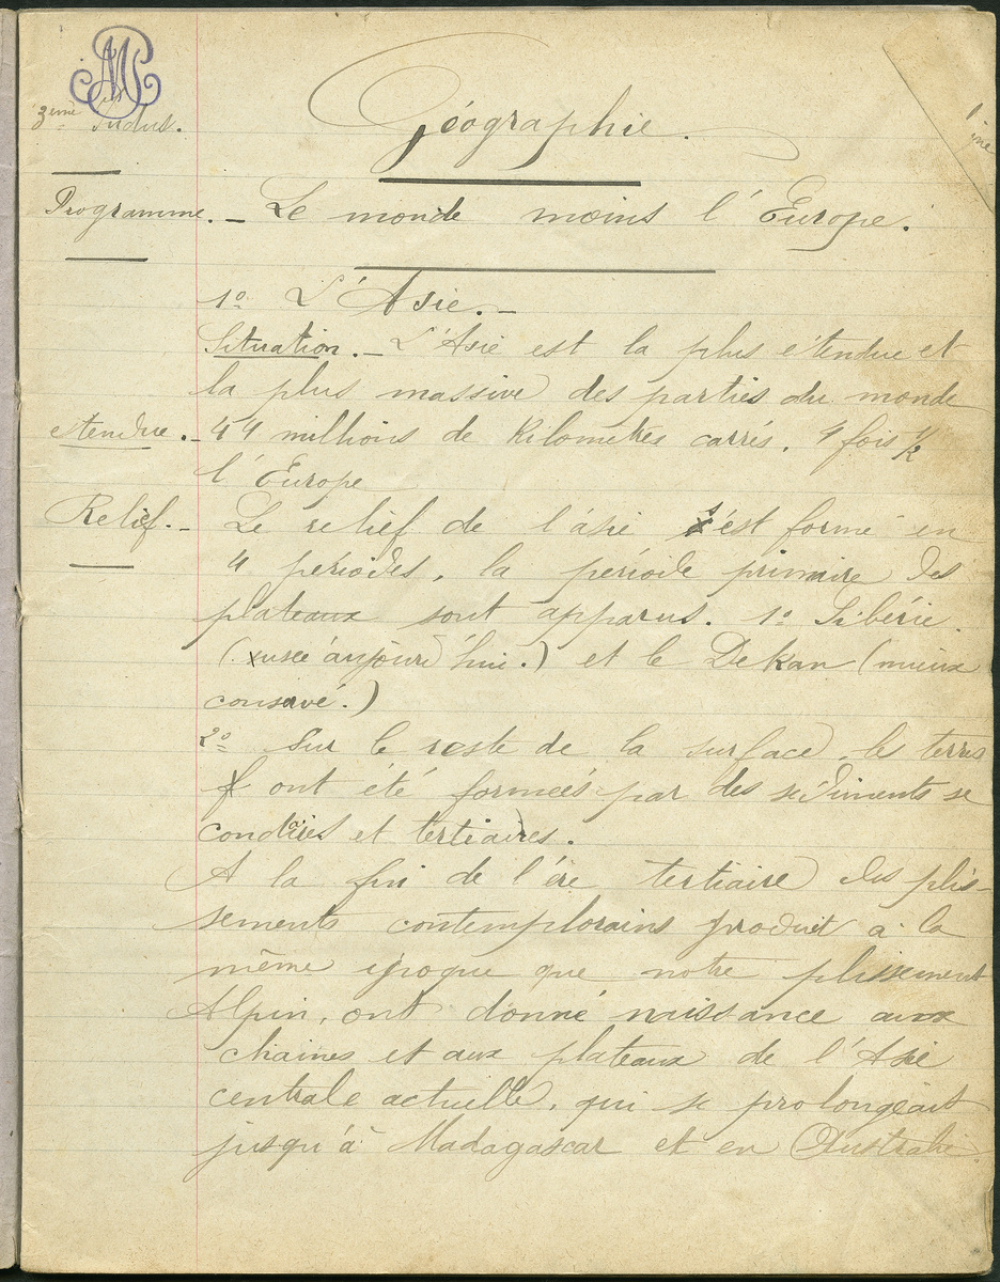 3ème Indus.
Géographie.
ine
Programme. — Le monde moins l'Europe.
1º L'Asie. —
Situation. — L'Asie est la plus étendue et
la plus massive des parties du monde
étendue. — 44 millions de Kilomètres carrés. 4 fois ½
l'Europe
Relief. — Le relief de l'asie s'est formé en
4 périodes, la période primaire des
plateaux sont apparus. 1º Sibérie
(usée aujourd'hui.) et le Dekan (mieux
conservé.)
2º Sur le reste de la surface, les terres
ont été formées par des sédiments se
condaires et tertiaires.
A la fin de l'ére tertiaire des plis-
sements contemplorains produit a la
même époque que notre plissement
Alpin, ont donné naissance aux
chaines et aux plateaux de l'Asie
centrale actuelle, qui se prolongeait
jusqu'à Madagascar et en Australie.